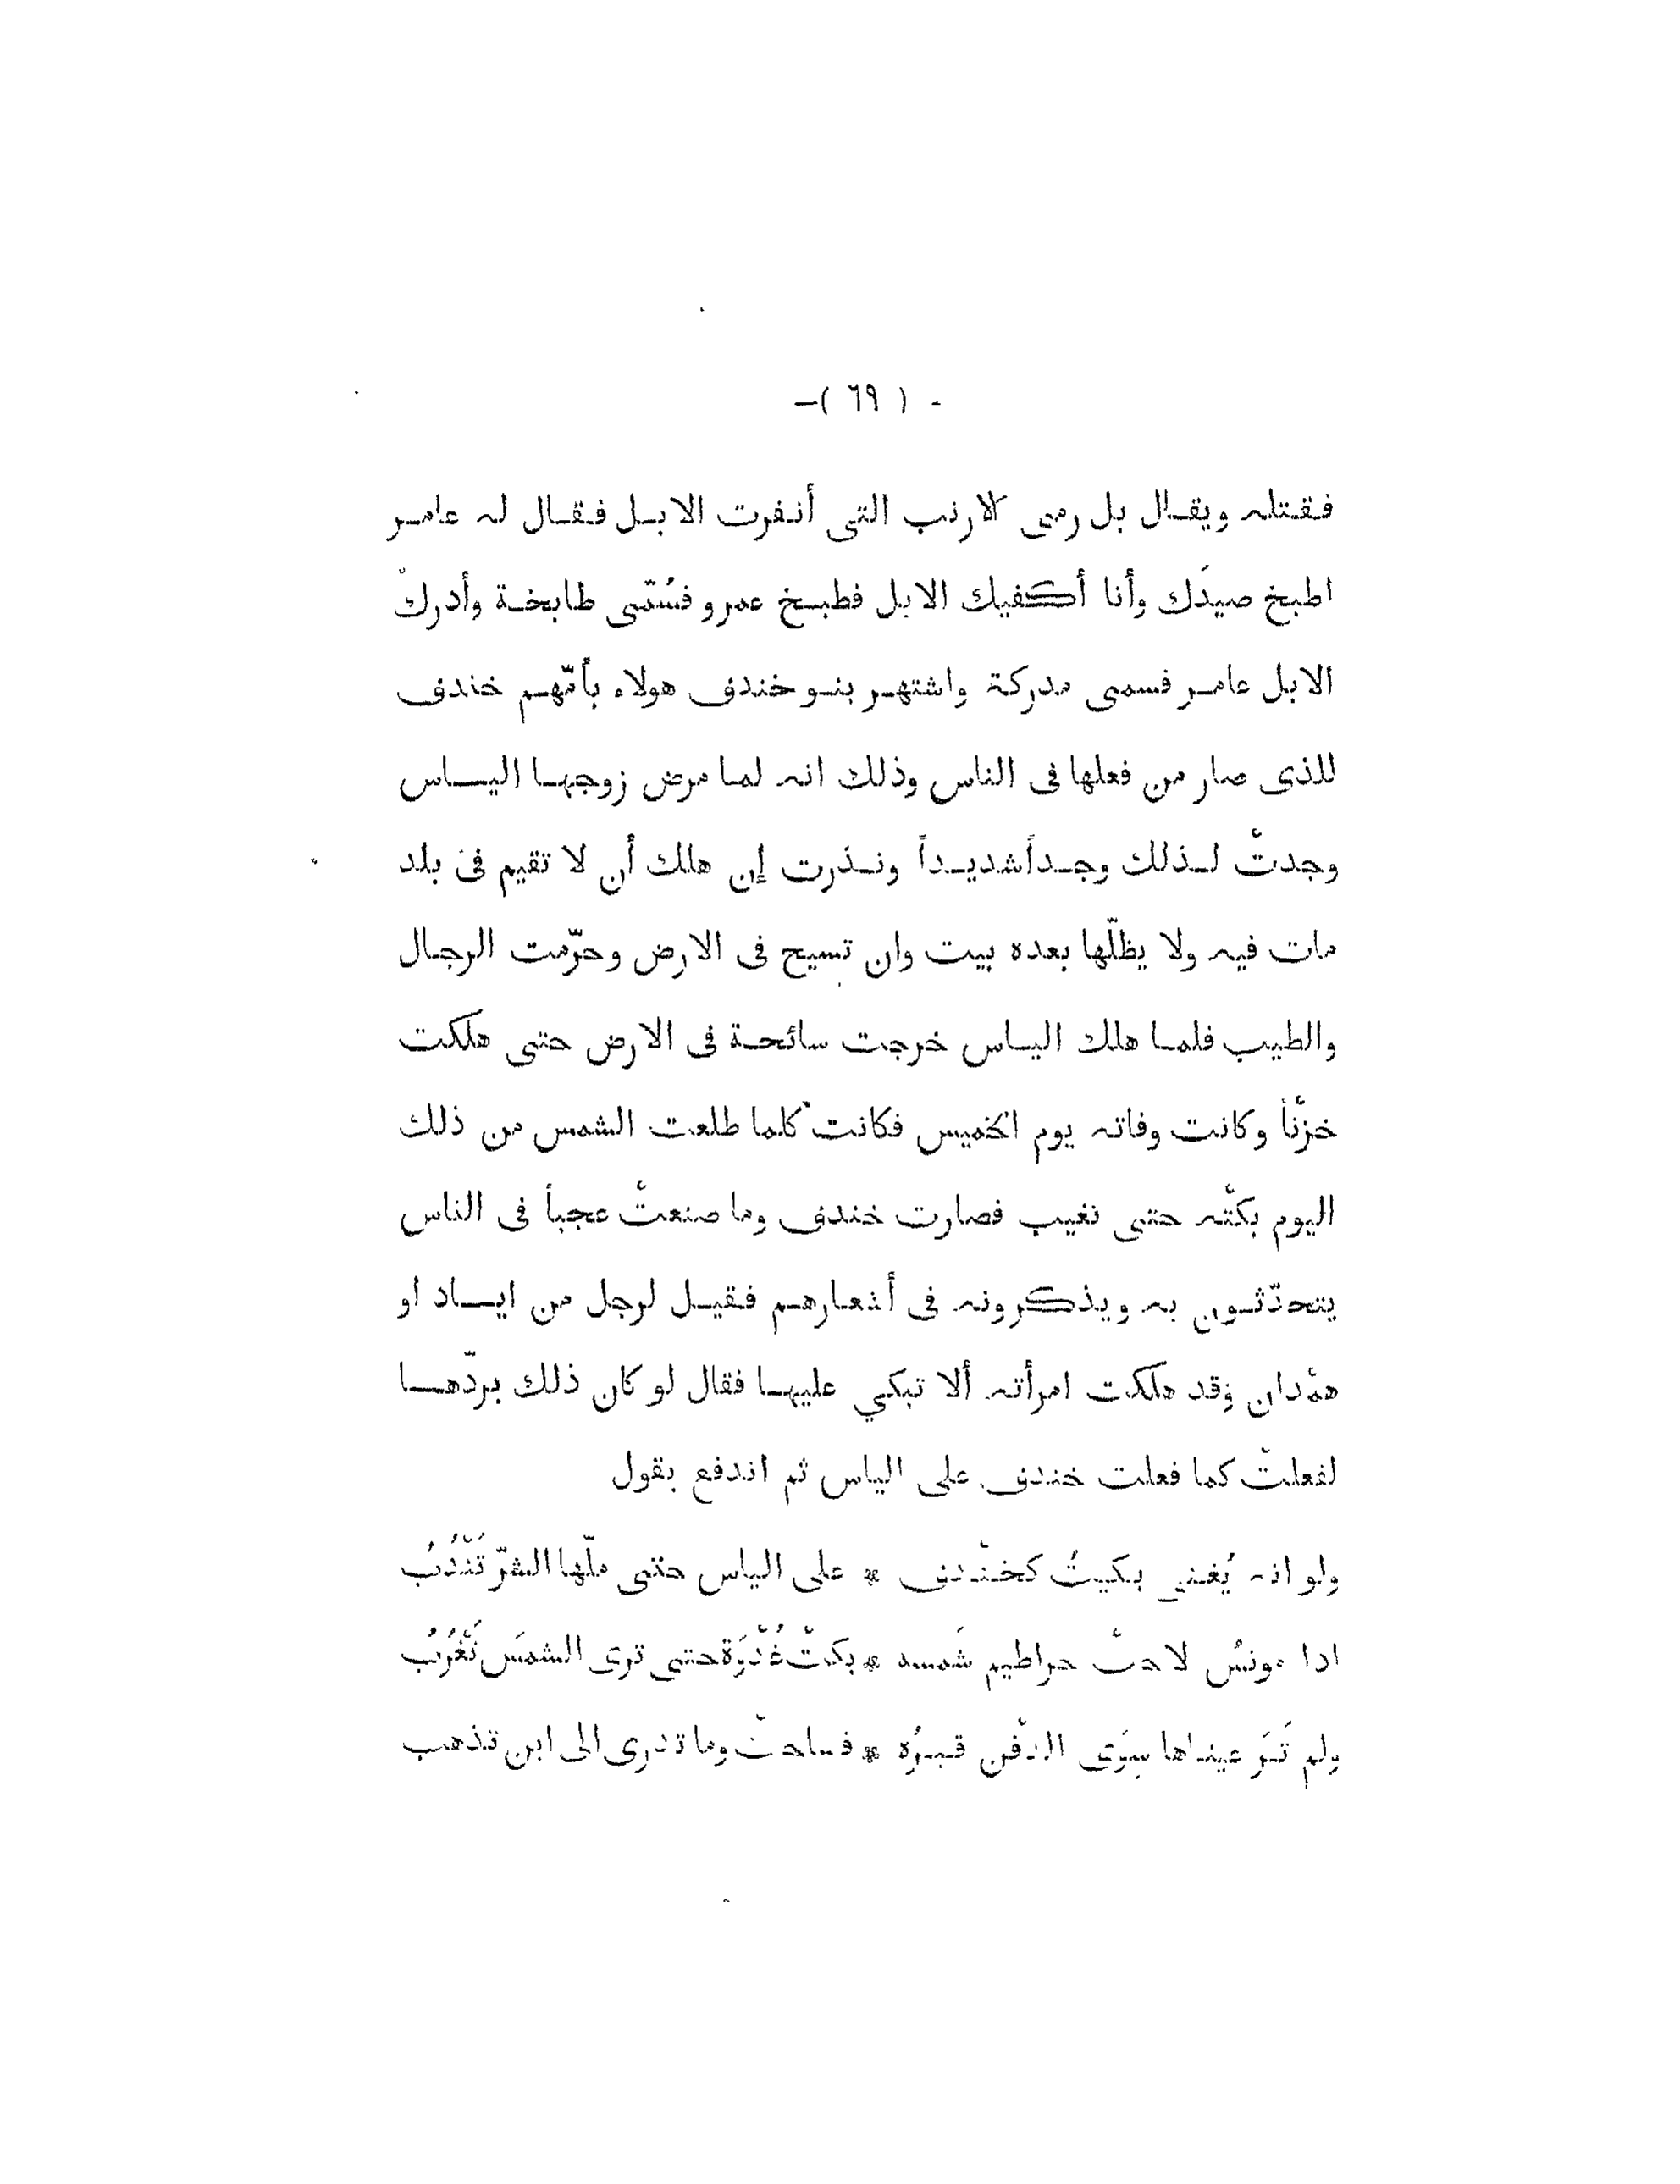 - ( ٦٩ ) -
فقتله ويقال بل رمى الارنب التى أنفرت الابل فقال له عامر
اطبخ صيدَك وأنا أكفيك الابل فطبخ عمرو فسُمّى طابخة وأدرك
الابل عامر فسمى مدركة واشتهر بنو خندف هولاء بأمّهم خندف
للذى صار من فعلها فى الناس وذلك انه لما مرض زوجها الياس
وجدتْ لذلك وجداً شديداً ونذرت إن هلك أن لا تقيم فى بلد
مات فيه ولا يظلّها بعده بيت وان تسيح فى الارض وحرّمت الرجال
والطيب فلما هلك الياس خرجت سائحة فى الارض حتى هلكت
حزنًا وكانت وفاته يوم الخميس فكانت كلما طلعت الشمس من ذلك
اليوم بكتْه حتى تغيب فصارت خندف وما صنعتْ عجباً فى الناس
يتحدّثون به ويذكرونه فى أشعارهم فقيل لرجل من اياد او
همْدان وقد هلكت امرأته ألا تبكي عليها فقال لو كان ذلك بردّها
لفعلتُ كما فعلت خندف على الياس ثم اندفع يقول
ولو انه يُغنى بكيتُ كخنْدف * على الياس حتى ملّها الشرّ تَنْدُبُ
اذا مونسُ لاحتْ خراطيم شَمسه * بكتْ غُدْوَة حتى ترى الشمسَ تَغْرُبُ
ولم تَرَ عيناها سِوَى الدّفْن قبرُه * فساحتْ وما تدرى الى اين تذهب